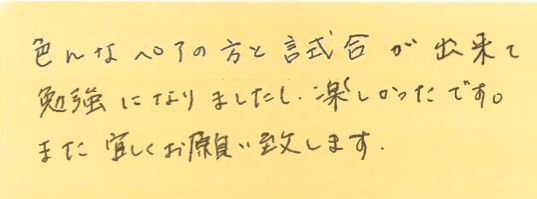 色んなペアの方と試合が出来て
勉強になりましたし、楽しかったです。
また宜しくお願い致します.